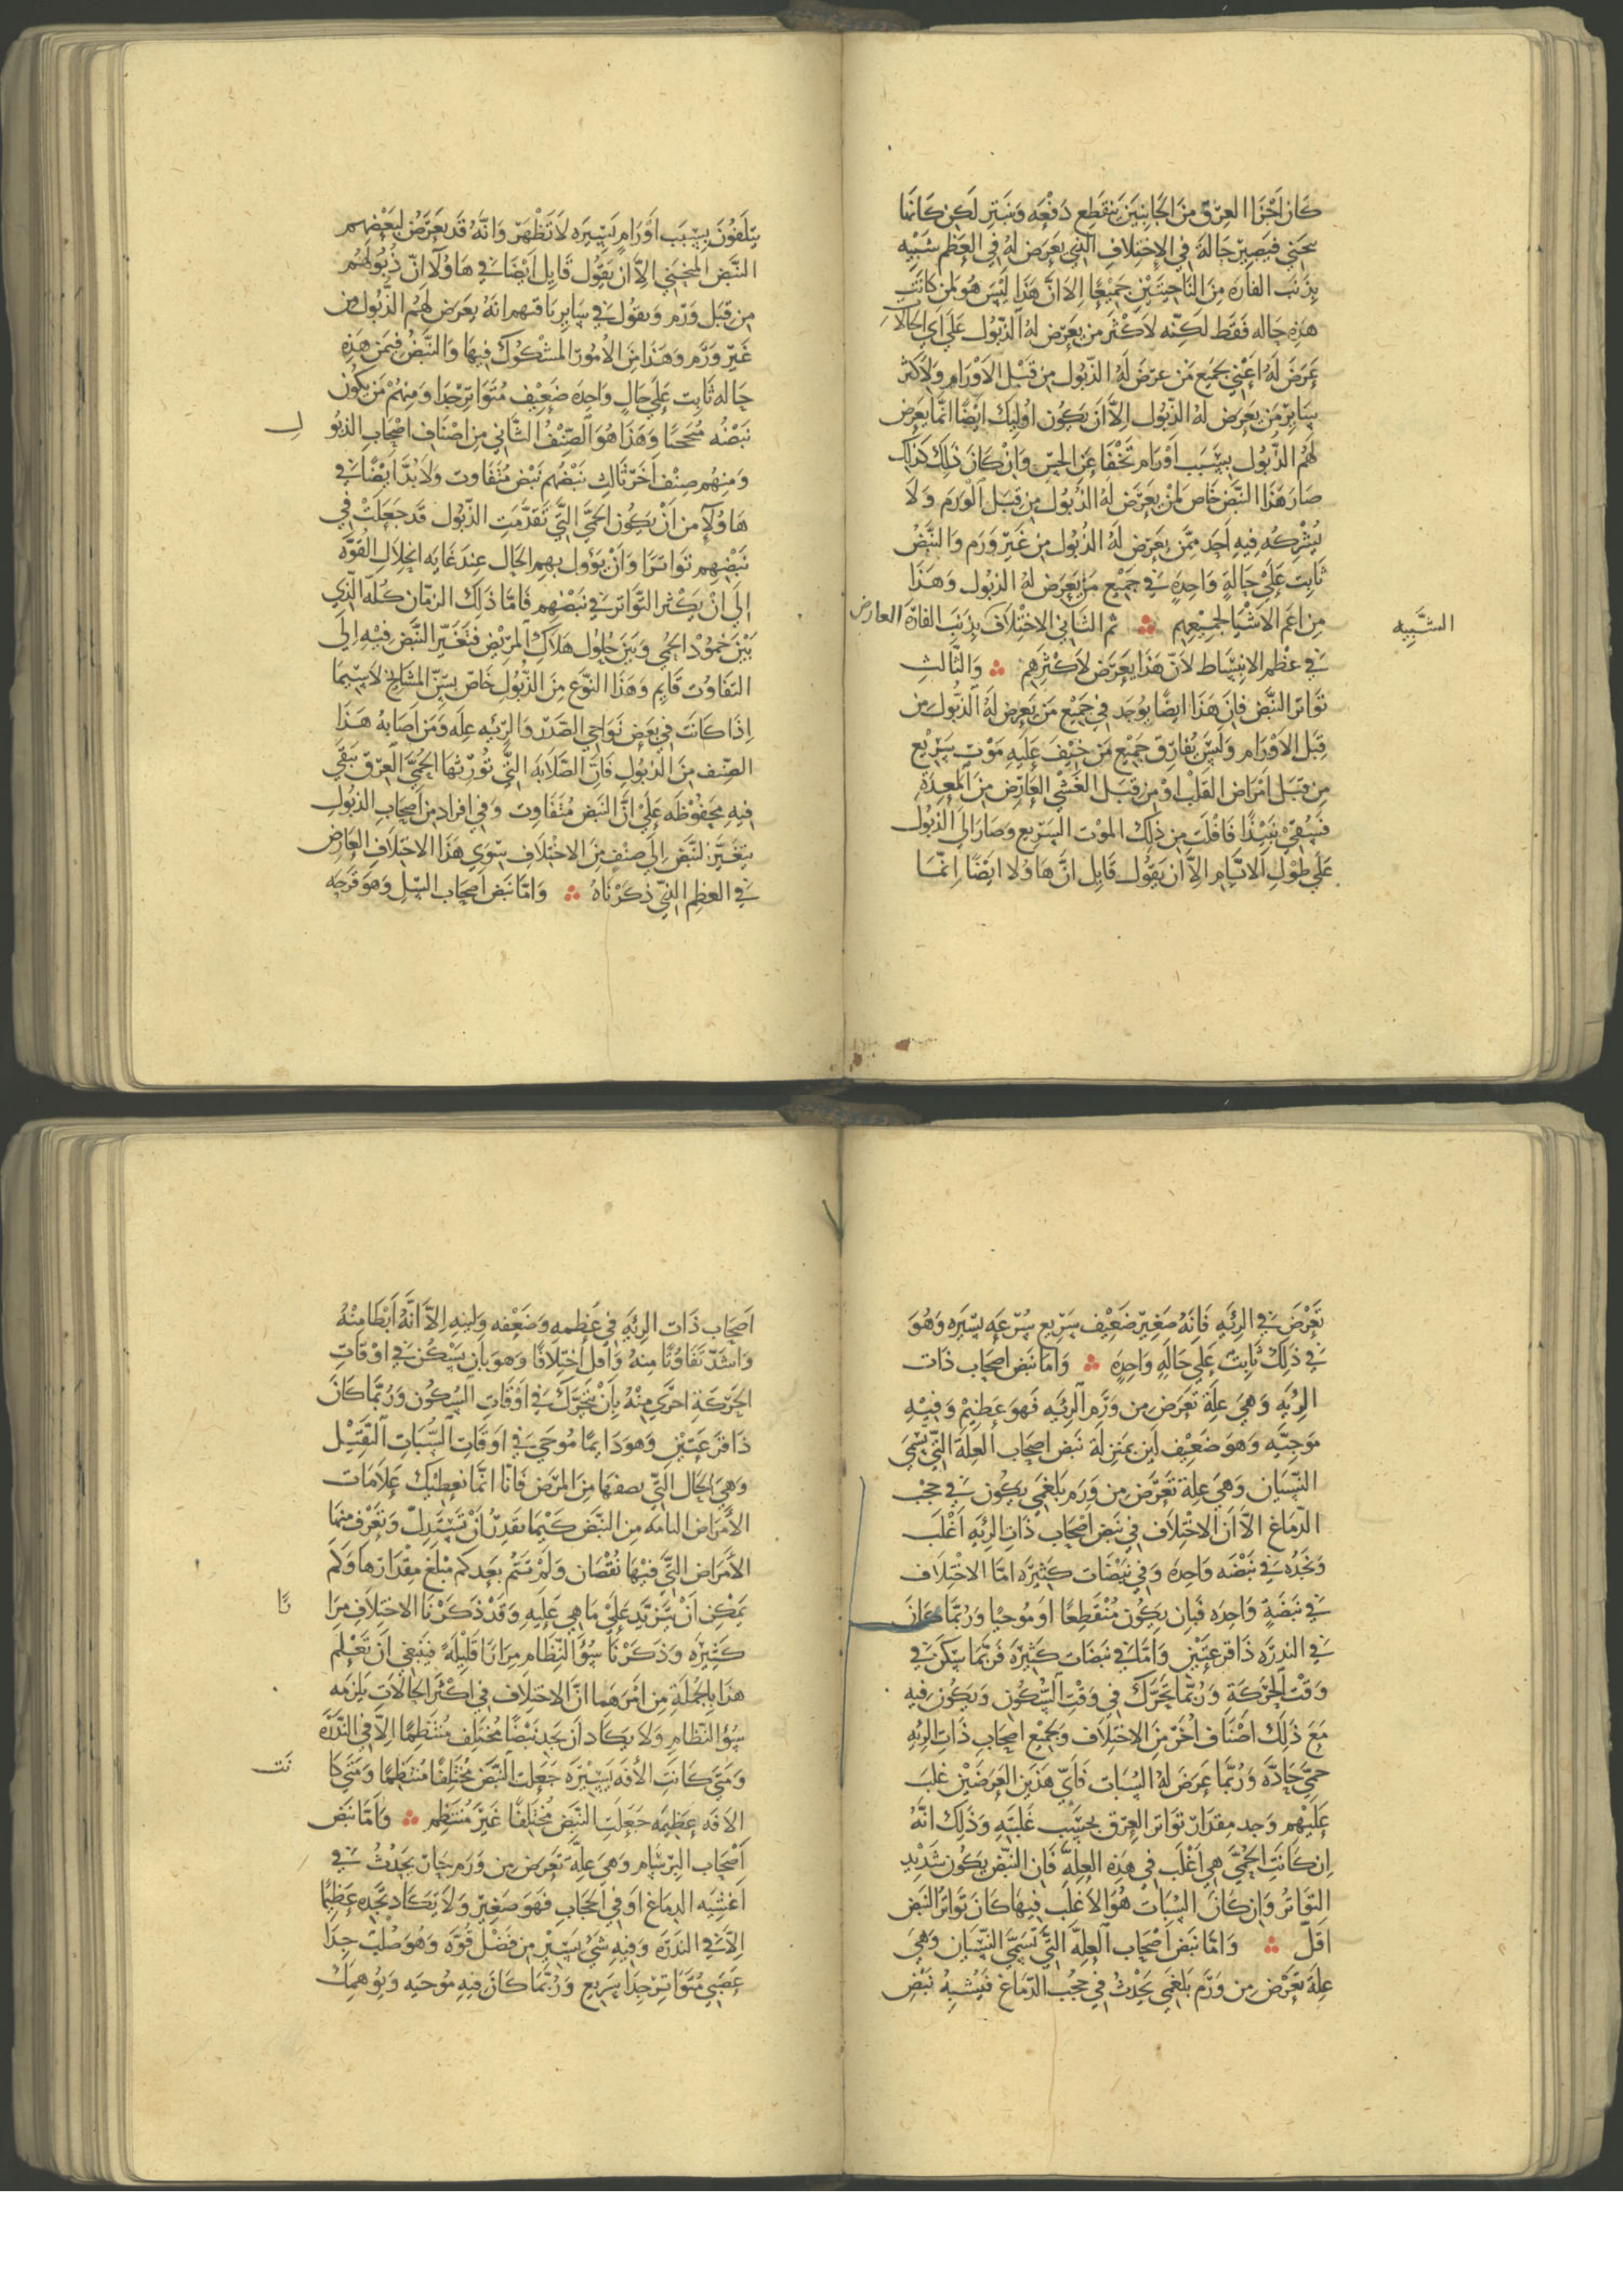 كان اجزا العرق من الجانبين ينقطع دفعه وينبتر لكن كانما
ينحني فيصير حاله في الاختلاف الذي يعرض له في العظم شبيه
بذنب الفاره من الناحيتين جميعا الا ان هذا ليس هو لمن كانت
هذه حاله فقط لكنه لاكثر من يعرض له الذبول على اي الحالات
عرض له اعني بجميع من عرض له الذبول من قبل الاورام ولاكثر
ساير من يعرض له الذبول الا ان يكون اوليك ايضا انما يعرض
لهم الذبول بسبب اورام تخفا عن الحس وان كان ذلك كذلك
صار هذا النبض خاص لمن يعرض له الذبول من قبل الورم ولا
يشركه فيه احد ممن يعرض له الذبول من غير ورم والنبض
ثابت على حالة واحدة في جميع من يعرض له الذبول وهذا
من اعم الاشيا لجميعهم ثم الثاني الاختلاف بذنب الفارة العارض
الشبيه
في عظم الانبساط لان هذا يعرض لاكثرهم والثالث
تواتر النبض فان هذا ايضا يوجد في جميع من يعرض له الذبول من
قبل الاورام وليس يفارق جميع من خيف عليه موت سريع
من قبل امراض القلب او من قبل الغشي العارض من المعدة
فسقي نبيذا فافلت من ذلك الموت السريع وصار الي الذبول
على طول الايام الا ان يقول قايل ان هاولا ايضا انما
يتلفون بسبب اورام يسيره لا تظهر وانه قد يعرض لبعضهم
النبض المنحني الا ان يقول قايل ايضا في هاولا ان ذبولهم
من قبل ورم ويقول في ساير باقيهم انه يعرض لهم الذبول من
غير ورم وهذا من الامور المشكوك فيها والنبض فيمن هذه
حاله ثابت على حال واحده ضعيف متواتر جدا ومنهم من يكون
نبضه منحنيا وهذا هو الصنف الثاني من اصناف اصحاب الذبو
ل
ومنهم صنف اخر ثالث نبضهم نبض متفاوت ولا بد ايضا في
هاولا من ان يكون الحمى التي تقدمت الذبول قد جعلت في
نبضهم تواترا وان يؤول بهم الحال عند غايه انحلال القوه
الى ان يكثر التواتر في نبضهم فاما ذلك الزمان كله الذي
بين خمود الحمى وبين حلول هلاك المريض فتغير النبض فيه الى
التفاوت قايم وهذا النوع من الذبول خاص بسن المشايخ لا سيما
اذا كانت في بعض نواحي الصدر والرئه عله ومن اصابه هذا
الصنف من الذبول فان الصلابه التي تورثها الحمى العرق يبقي
فيه محفوظه على ان النبض متفاوت وفي افراد من اصحاب الذبول
يتغير النبض الى صنف من الاختلاف سوى هذا الاختلاف العارض
في العظم الذي ذكرناه واما نبض اصحاب السل وهو قرحه
تعرض في الرئه فانه صغير ضعيف سريع سرعه يسيره وهو
في ذلك ثابت على حاله واحده واما نبض اصحاب ذات
الرئه وهي علة تعرض من ورم الرئه فهو عظيم وفيه
موجيه وهو ضعيف لين بمنزلة نبض اصحاب العلة التي تسمى
النسيان وهي علة تعرض من ورم بلغمي يكون في حجب
الدماغ الا ان الاختلاف في نبض اصحاب ذات الرئه اغلب
وتجده في نبضه واحده وفي نبضات كثيره اما الاختلاف
في نبضة واحده فبان يكون منقطعا او موجيا وربما كان
في الندره ذا قرعتين واما في نبضات كثيرة فربما سكن في
وقت الحركة وربما تحرك في وقت السكون ويكون فيه
مع ذلك اصناف اخر من الاختلاف وبجميع اصحاب ذات الرئه
حمى حاده وربما عرض له السبات فاي هذين العرضين غلب
عليهم وجد مقدار تواتر العرق بحسب غلبته وذلك انه
ان كانت الحمى هي اغلب في هذه العلة فان النبض يكون شديد
التواتر وان كان السبات هو الاغلب فيها كان تواتر النبض
اقل واما نبض اصحاب العلة التي تسمى النسيان وهي
علة تعرض من ورم بلغمي يحدث في حجب الدماغ فيشبه نبض
اصحاب ذات الرئة في عظمه وضعفه ولينه الا انه ابطا منه
واشد تفاوتا منه واقل اختلافا وهو بان يسكن في اوقات
الحركة احرى منه بان يتحرك في اوقات السكون وربما كان
ذا قرعتين وهو دايما موجي في اوقات السبات الثقيل
وهي الحال التي يصفها من المرض فانا انما نعطيك علامات
الامراض التامه من النبض كيما تقدر ان تستدل وتعرف منها
الامراض التي فيها نقصان ولم تتم بعد كم مبلغ مقدارها وكم
يمكن ان تتزيد على ما هي عليه وقد ذكرنا الاختلاف مرا
را
كثيرة وذكرنا سؤ النظام مرارا قليلة فينبغي ان تعلم
هذا بالجملة من امرهما ان الاختلاف في اكثر الحالات يلزمه
سؤ النظام ولا يكاد ان يجد نبضا مختلف منتظما الا في الندرة
ومتى كانت الافه يسيره جعلت النبض مختلفا منتظما ومتى كا
نت
الافه عظيمه جعلت النبض مختلفا غير منتظم واما نبض
اصحاب البرسام وهي علة تعرض من ورم حار يحدث في
اغشيه الدماغ او في الحجاب فهو صغير ولا يكاد تجده عظيما
الا في الندره وفيه شيء يسير من فضل قوه وهو صلب جدا
عصبي متواتر جدا سريع وربما كان فيه موجيه ويوهمك